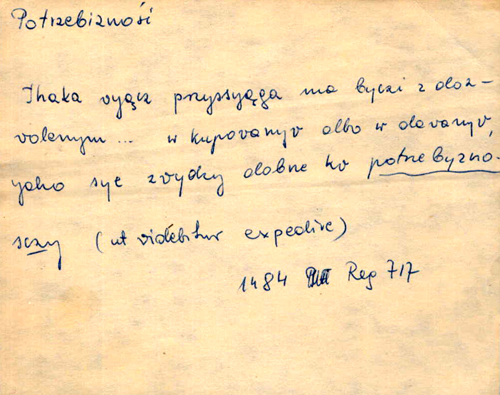 Potrzebizność
Thaka vyącz przyssyąga ma byczi z doz-
volenym... w kupovanyv albo w davanyv,
yako sye zvydzy dobne ku potrzebyzno-
sczy (ut videbitur expedire)
1484 Reg 717